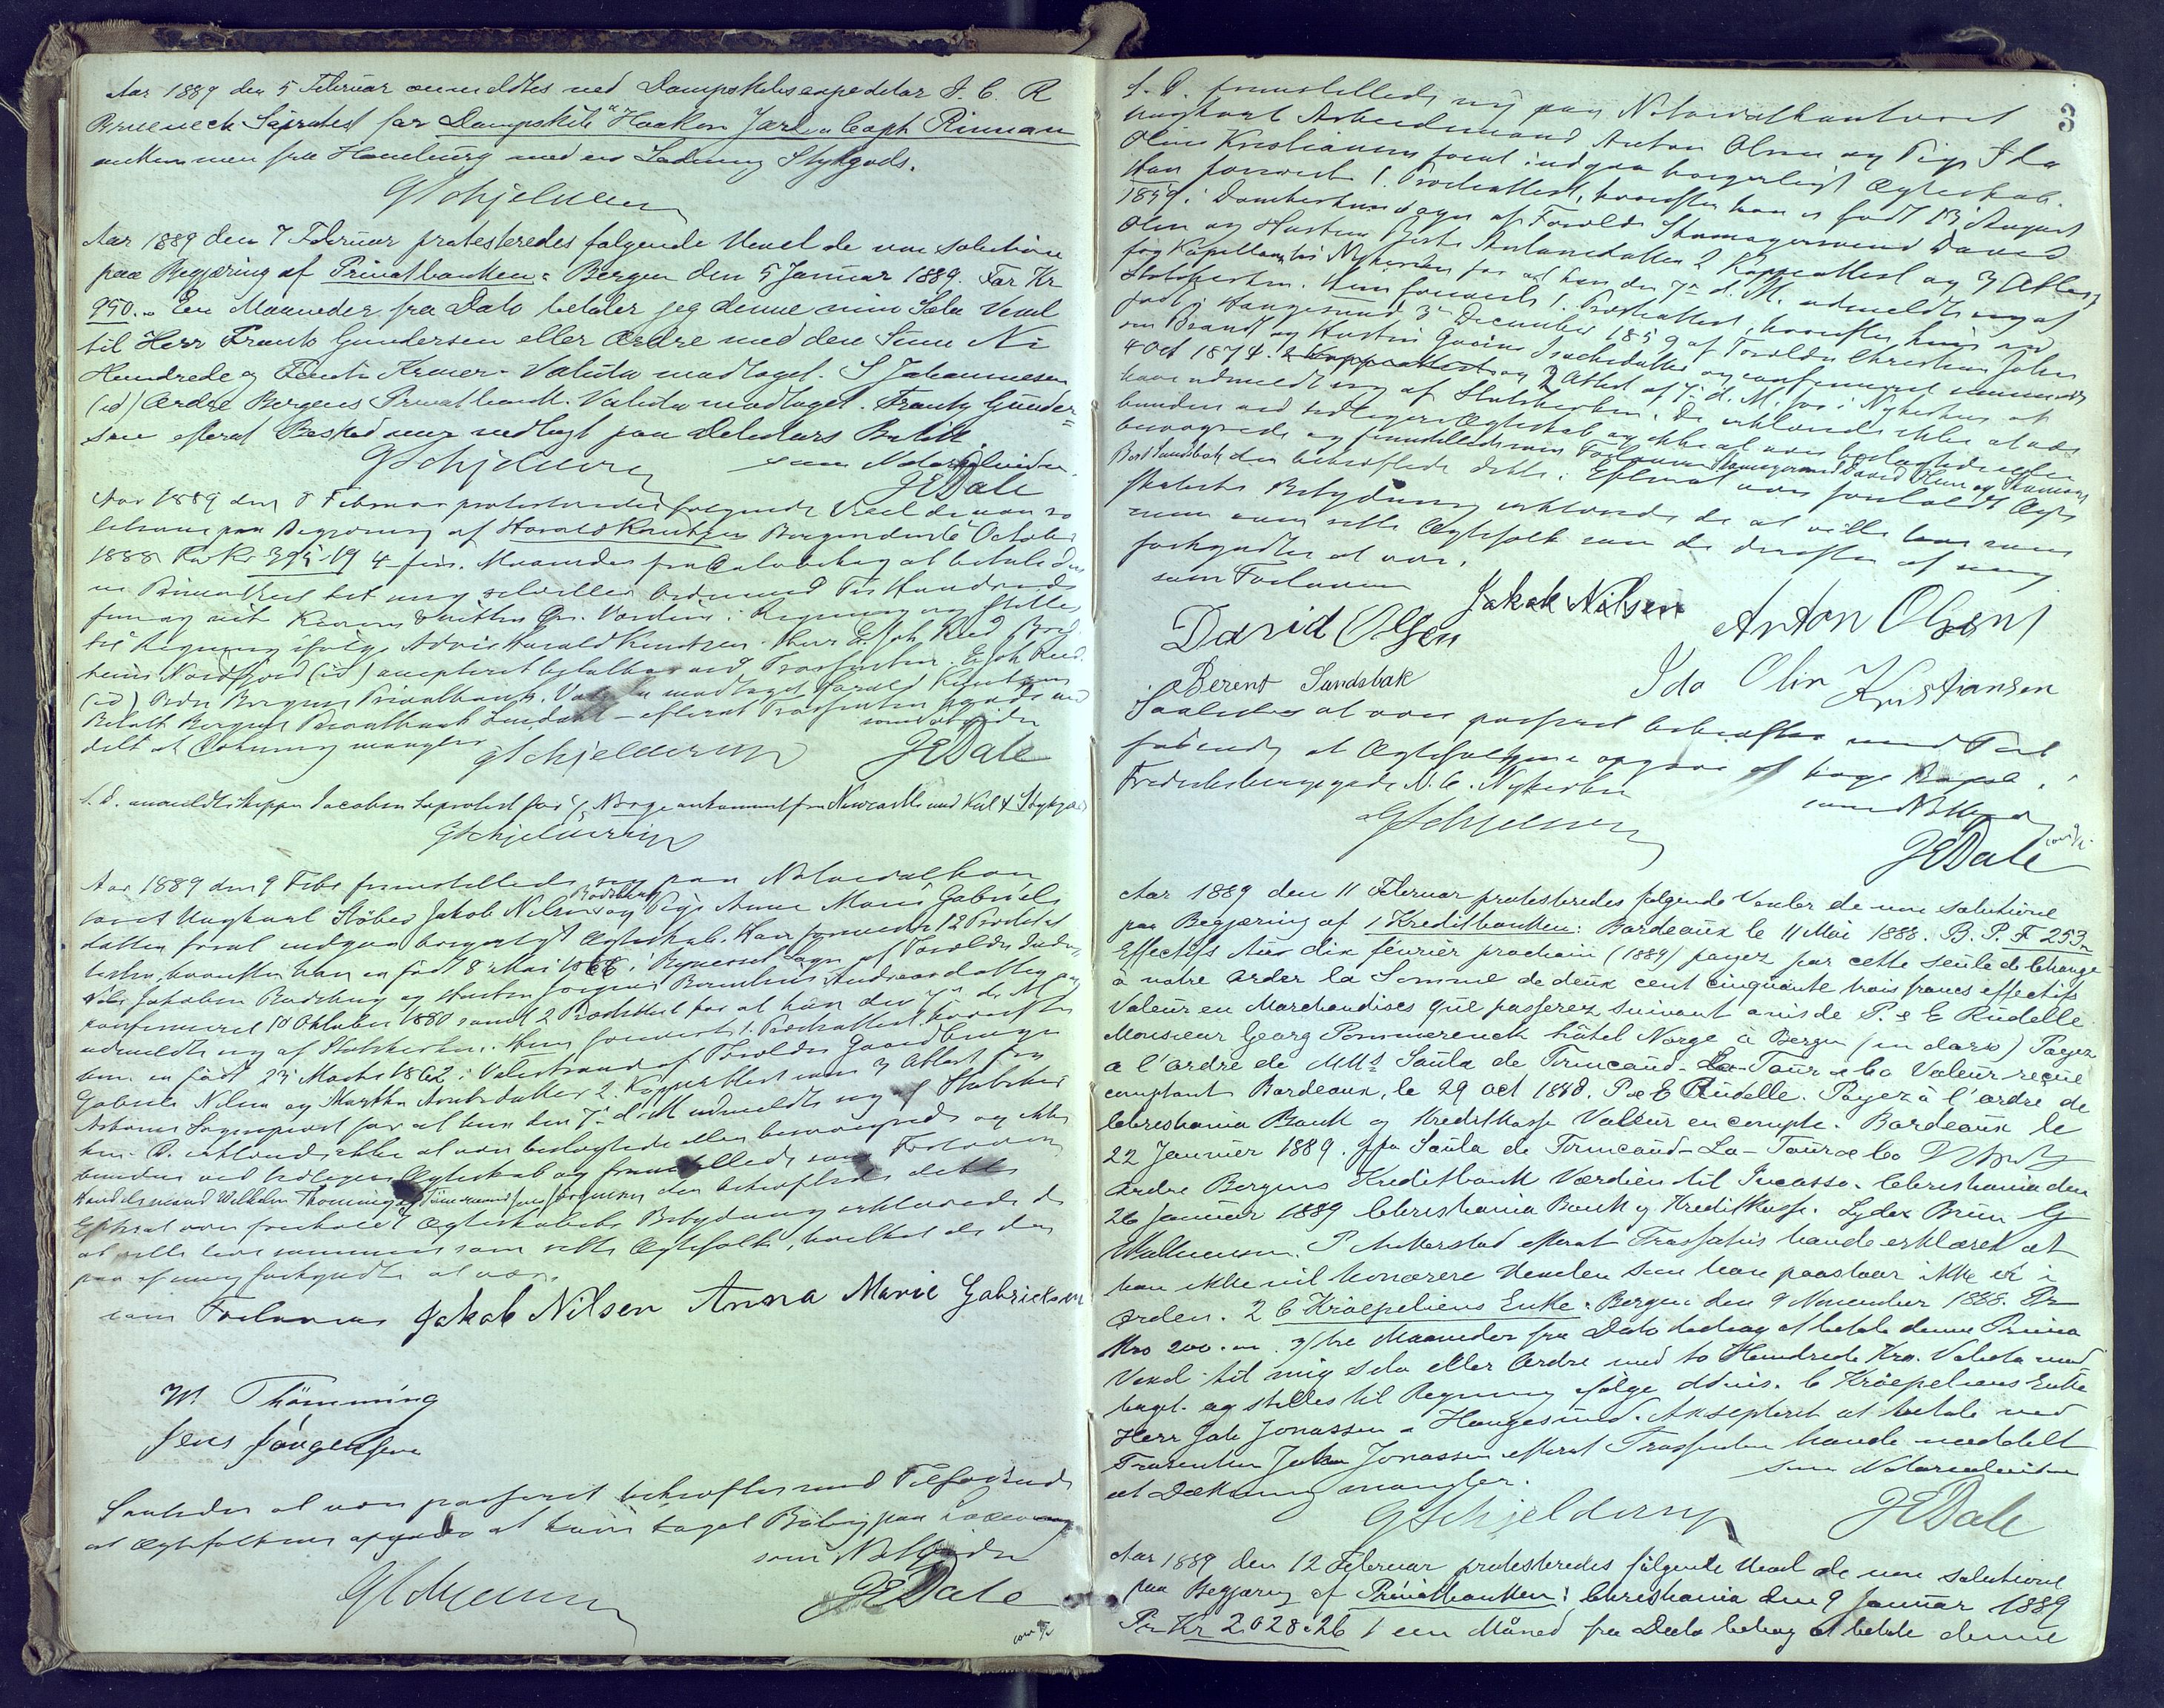 Aar 1889 den 5 Februar anmeldtes ved Dampskibsexpeditør J. C. R
Brueneck Søprotest for Dampskib "Haakon Jarl" Capt Rinnan
ankommen fra Hamburg med en Ladning Stykgods.
GSchjelderup
Aar 1889 den 7 Februar protesteredes følgende Vexel de non solutione
paa Begjæring af Privatbanken: Bergen den 5 Januar 1889. For Kr
950.- En Maaneder fra Dato betaler jeg denne min Sola Vexel
til Herr Frantz Gundersen eller Ordre med den Sum Ni
Hundrede og Femti Kroner - Valuta modtaget. S Johannesen
(id) Ordre Bergens Privatbank. Valuta modtaget. Frantz Gunder=
sen efterat Besked var nedlagt paa Debitors Butik
GSchjelderup som Notarialvidne
JEDale
Aar 1889 den 8 Februar protesteredes følgende Vexel de non so
lutione paa Begjæring af Harald Knutzen Bergen den 6 October
1888 For Kr 395.19 4 fire Maaneder fra Dato behag at betale denne
Prima Vexel til mig selv eller Ordre med Tre Hundrede
til Regning ifølge Advis Harald Knutzen. Herr E. Joh. Reed
Nordfjord (id) accepteret betalbar ved Trassenten. E Joh Reed
(id) Ordre Bergens Privatbank. Valuta modtaget Harald Knutzen
Bergens Privatbank - efterat Trassenten havde med
delt at Dækning mangler GSchjelderup JEDale
S. D. anmeldte Skipper Jacobsen Søprotest for S/S Norge ankommet fra Newcastle med Kul & Stykgods
GSchjelderup
Aar 1889 den 9 Febr fremstillede sig paa Notarialkon
toret Ungkarl Støber Jakob Nilsen og Pige Anna Marie Gabriels
datter forat indgaa borgerligt Ægteskab. Han foreviste 1 & 2 Præsteat
tester, hvorefter han er født 8 Mai 1866 i Sogn af Forældre
Nils Jakobsen og Hustru Bernhus Andreasdatter og
confirmeret 10 Oktober 1880 samt 2 Præsteattest for at han den 7de d. M.
udmeldte sig af Statskirken. Hun foreviste 1. Præsteattest hvorefter
hun er født 23 Marts 1862 i Valestrand af Forældre Gaardbruger
Gabriel Nilsen og Martha 2. Koppeattest samt 3 Attest fra
Sogneprest for at hun den 7de d. M udmeldte sig af Statskir
ken. De erklærede ikke at være beslægtede eller besvogrede og ikke
bundne ved tidligere Ægteskab og fremstillede som Forlovere
Handelsmand Wilhelm Thømming og Jens Jørgensen der bekræftede dette
Efterat være foreholdt Ægteskabets Betydning erklærede de
at ville leve sammen som rette Ægtefolk, hvilket de der
paa af mig forkyndtes at være.
som Forlovere Jakob Nilsen Anna Marie Gabrielsen
W. Thömming
Jens Jörgensen
Saaledes at være passeret bekræftes med Tilføiende
at Ægtefolkene opgav at have taget Bolig paa Laxevaag
som Not Vidne
GSchjelderup JEDale
S. D. fremstillede sig paa Notarialkontoret
Ungkarl Arbeidsmand Anton Olsen og Pige Ida
Oline Kristiansen forat indgaa borgerligt Ægteskab.
Han foreviste 1. Præsteattest, hvorefter han er født 13 August
1859 i Domkirkens Sogn af Forældre Skomagersvend David
Olsen og Hustru Antonsdatter 2 Koppeattest og 3 Attest
fra Kapellanen til Nykirken for at han den 7de d. M. udmeldte sig af
Statskirken. Hun foreviste 1. Præsteattest, hvorefter hun er
født i Haugesund 3de December 1859 af Forældre Christian John
sen Brandt og Hustru og confirmeret sammesteds
4 Oct 1874. 2 Koppeattest og 3 Attest af 7de d. M. fra Nykirken at
have udmeldt sig af Statskirken. De erklærede ikke at være
bundne ved tidligere Ægteskab og ikke at være beslægtede eller
besvogrede og fremstillede som Forlovere Skomagersvend David Olsen og
Bert Sandsbak der bekræftede dette. Efterat være foreholdt Ægte
skabets Betydning erklærede de at ville leve sam
men som rette Ægtefolk som de derefter af mig
forkyndtes at være.
som Forlovere
Jakob Nilsen
David Olsen Anton Olsen
Berent Sandsbak Ida Olin Kristiansen
Saaledes at være passeret bekræftes med Til
føiende at Ægtefolkene opgav at tage Bopæl i
Frederiksbergsgade N. 6. Nykirken
som Not Vidne
GSchjelderup
JEDale
Aar 1889 den 11 Februar protesteredes følgende Vexler de non solutione
paa Begjæring af 1 Kreditbanken: Bordeaux le 11 Mai 1888. B. P. F 253
Effectifs Au dix février prochain (1889) payez par cette seule de Change
à notre Order la Somme de deux cent cinquante trois francs effectifs
Valeur en Marchandises que passerez suivant avis de P. & E Rüdelle
Monsieur Georg Pommerenck hôtel Norge à Bergen (en dorso) Payez
a l'ordre de MMs Saula de Trincaud-La-Tour & Co Valeur reçue
comptant Bordeaux, le 29 oct 1888. P & E Rüdelle. Payez à l'ordre de
Christiania Bank og Kreditkasse Valeur en compte. Bordeaux le
22 Janvier 1889. ppa Saula de Trincaud-La-Tour & Co
Ordre Bergens Kreditbank Værdien til Incasso. Christiania den
26 Januar 1889 Christiania Bank og Kreditkasse. Lyder Brun
P Ankerstad efterat Trassatus havde erklæret at
han ikke vil honorere Vexelen som han paastaar ikke er i
Orden. 2 C Kroepeliens Enke: Bergen den 9 November 1888. Pr
Kro 200.- 3/tre Maaneder fra Dato behag at betale denne Prima
Vexel til mig selv eller Ordre med to Hundrede Kro. Valuta mod
taget og stilles til Regning ifølge Advis. C Kröepeliens Enke
Herr Joh Jonassen Haugesund. Aksepteret at betale ved
Trasenten John Jonassen efterat Trassenten havde meddelt
at Dækning mangler. som Notarialvidne
GSchjelderup JEDale
Aar 1889 den 12 Februar protesteredes følgende Vexel de non solutione
paa Begjæring af Privatbanken: Christiania den 9 Januar 1889
Pr Kr 2028.26 1 een Måned fra Dato behag at betale denne
3